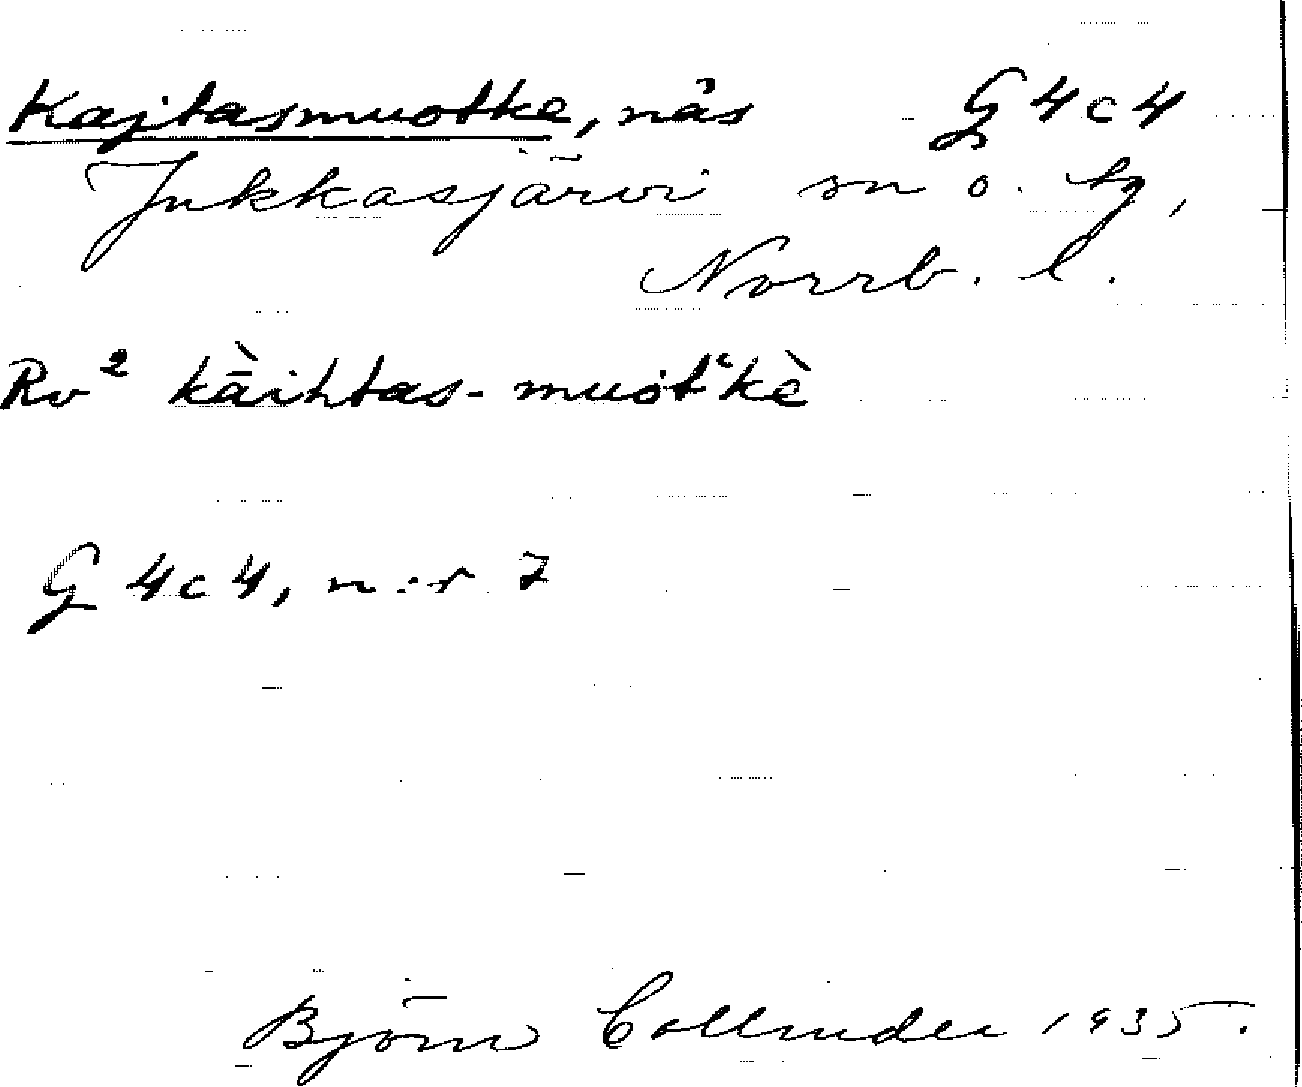 Kajtasmuotke, näs G 4 c 4
Jukkasjärvi sn o. tg,
Norrb. l.
Rv² kā̀ihtas-muȯt‘kè
G 4 c 4, n:r 7
Björn Collinder 1935.